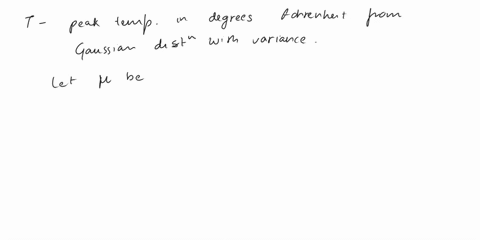 T - peak temp. in degrees fahrenheit from
Gaussian distⁿ with variance.
Let μ be